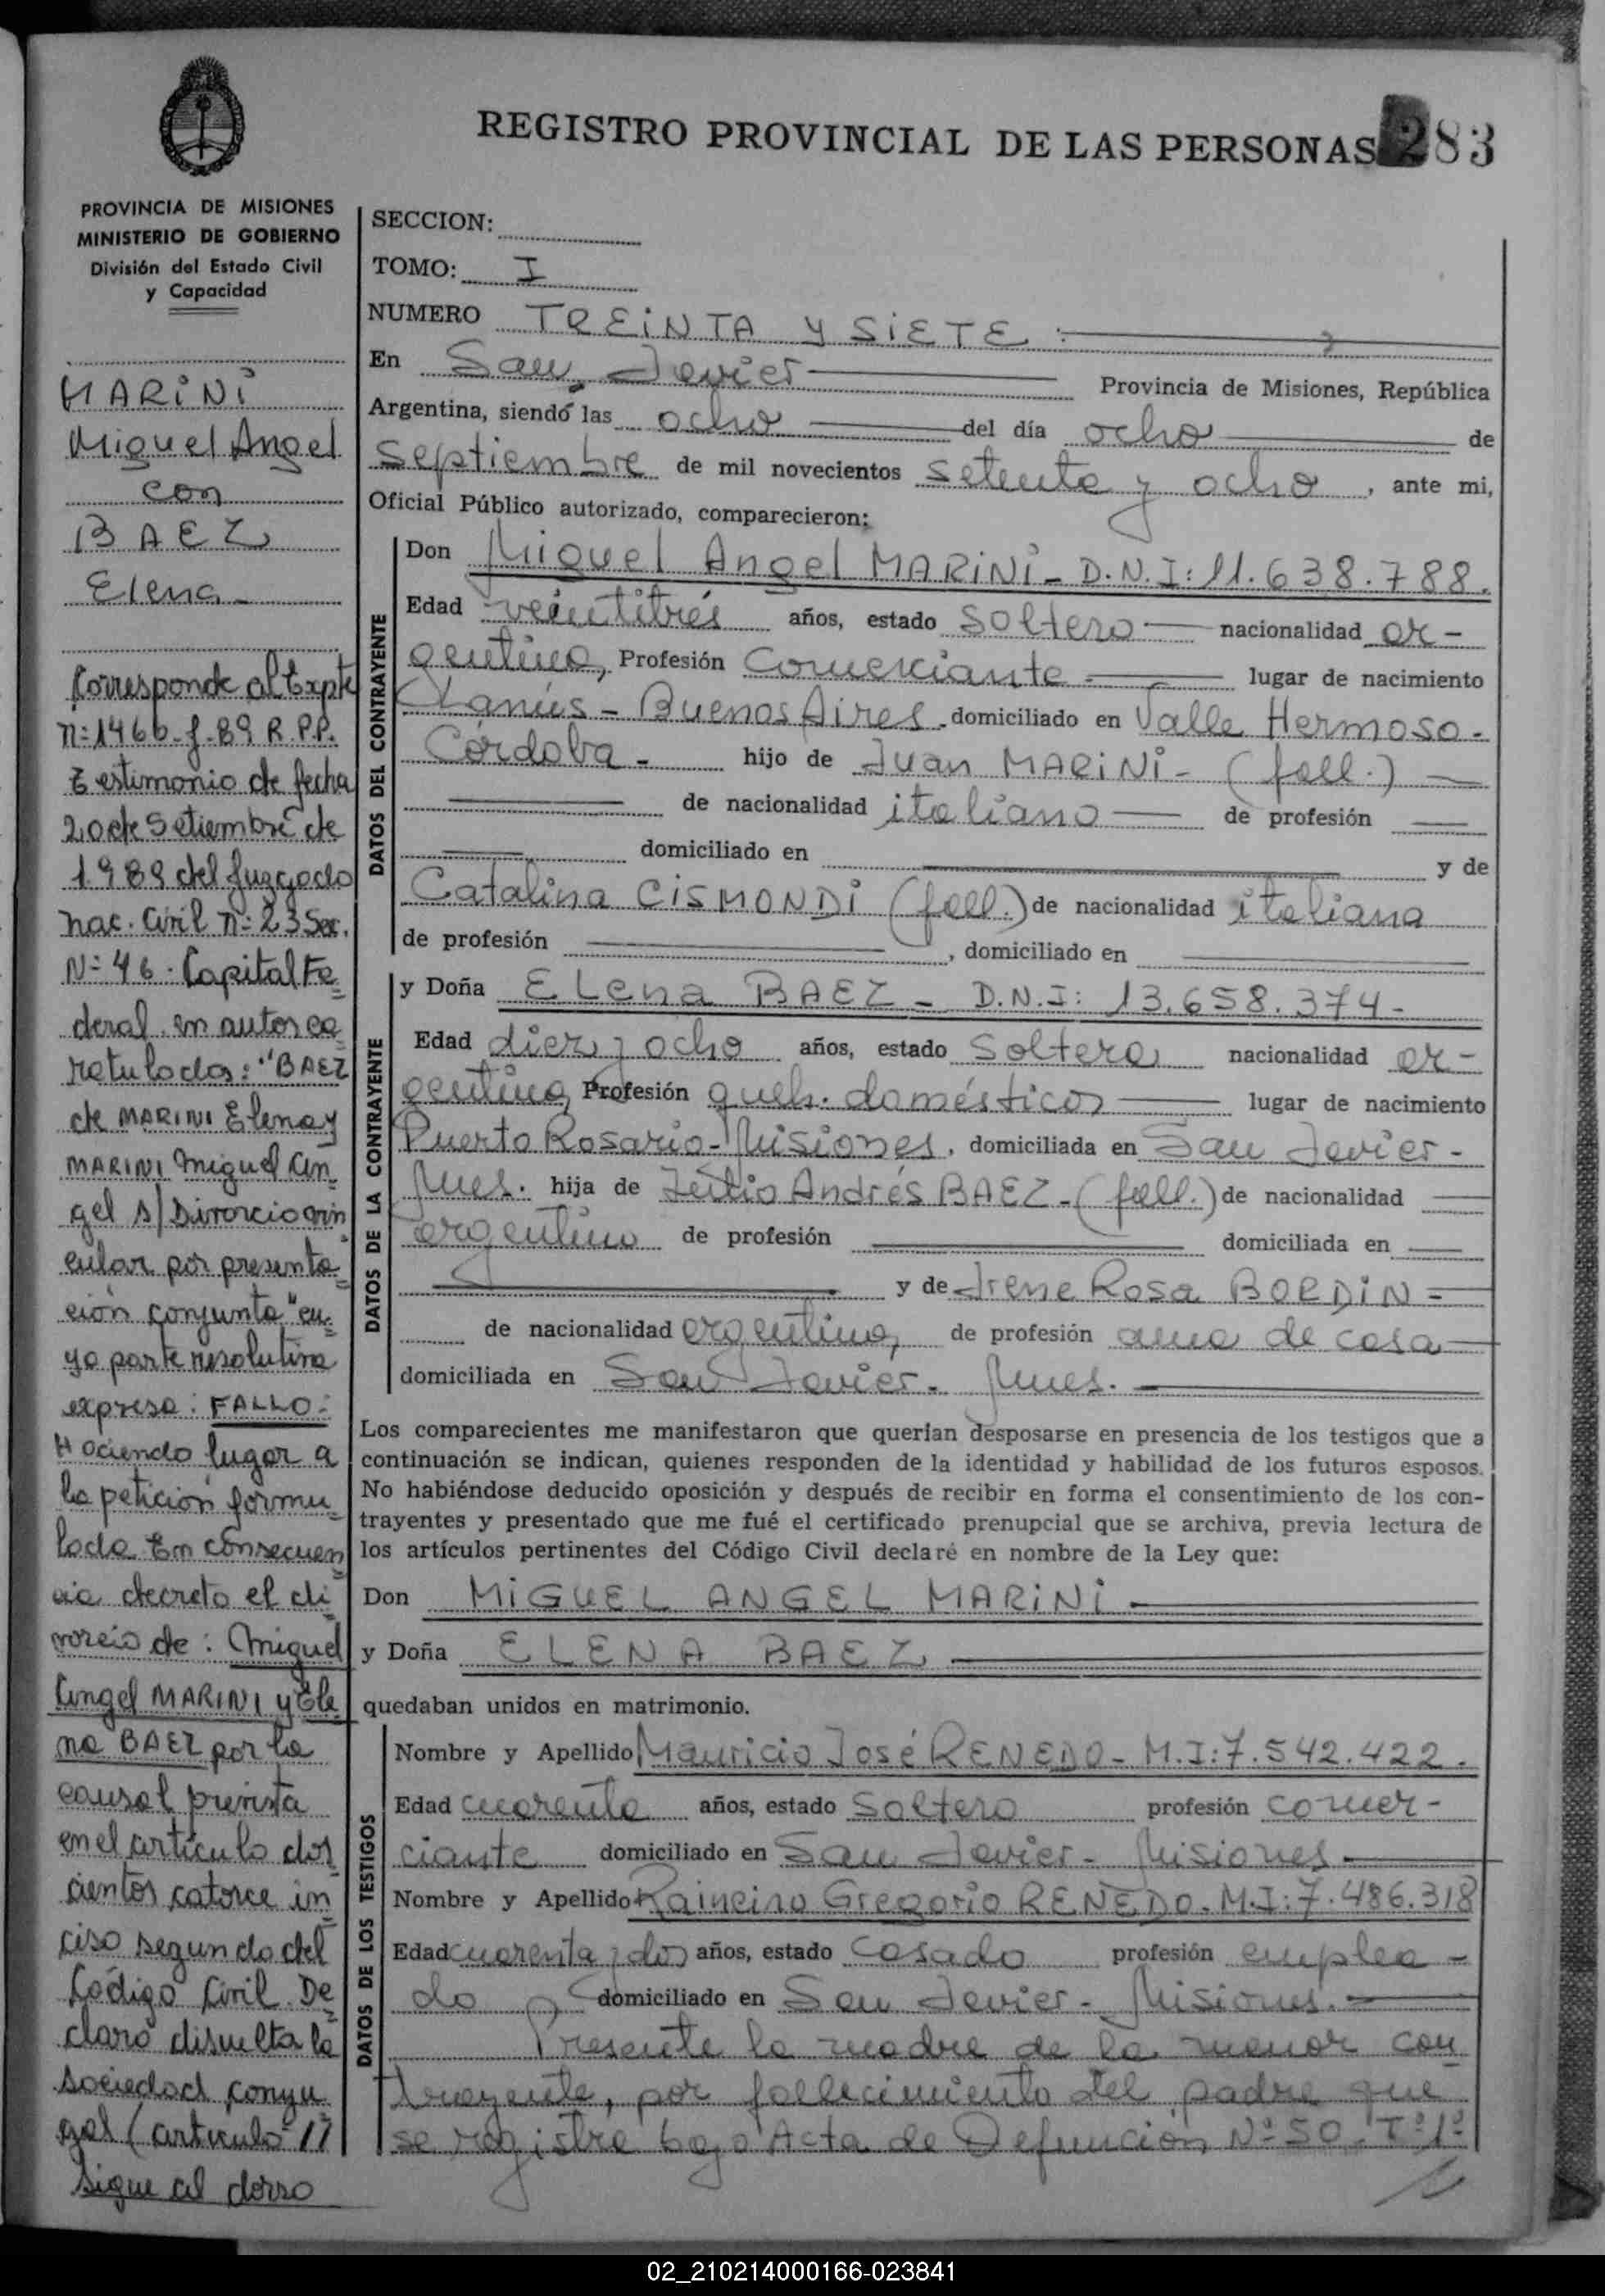 REGISTRO PROVINCIAL DE LAS PERSONAS 283
PROVINCIA DE MISIONES
MINISTERIO DE GOBIERNO
División del Estado Civil
y Capacidad
MARINI
Miguel Angel
con
BAEZ
Elena-
Corresponde al Expte
n:1466-f-89 R.P.P.
Testimonio de fecha
20 de Setiembre de
1989 del Juzgado
Nac. Civil n:23 Sec.
N:46. Capital Fe
deral. en autos ca
ratulados: "BAEZ
de MARINI Elena y
MARINI Miguel An
gel s/Divorcio vin
cular por presenta
ción conjunta" cu
ya parte resolutiva
expresa: FALLO:
Haciendo lugar a
la petición formu
lada En consecuen
cia decreto el di
vorcio de: Miguel
Angel MARINI y Ele
na BAEZ por la
causal prevista
en el artículo dos
cientos catorce in
ciso segundo del
Código Civil. De
claro disuelta la
sociedad conyu
gal (artículo 13
Sigue al dorso
SECCION:
TOMO: I
NUMERO TREINTA Y SIETE :
En San Javier Provincia de Misiones, República
Argentina, siendo las ocho del día ocho de
septiembre de mil novecientos setenta y ocho, ante mi,
Oficial Público autorizado, comparecieron:
DATOS DEL CONTRAYENTE
Don Miguel Angel MARINI- D.N.I: 11.638.788.
Edad veintitrés años, estado soltero nacionalidad ar-
gentino, Profesión Comerciante lugar de nacimiento
Lanús - Buenos Aires. domiciliado en Valle Hermoso-
Córdoba- hijo de Juan MARINI- (fall.)
de nacionalidad italiano de profesión
domiciliado en y de
Catalina CISMONDI (fall.) de nacionalidad italiana
de profesión , domiciliado en
DATOS DE LA CONTRAYENTE
y Doña Elena BAEZ- D.N.I: 13.658.374-
Edad diez y ocho años, estado soltera nacionalidad ar-
gentina, Profesión queh. domésticos lugar de nacimiento
Puerto Rosario-Misiones. domiciliada en San Javier-
Mnes. hija de Julio Andrés BAEZ-(fall.) de nacionalidad
argentino de profesión domiciliada en
y de Irene Rosa BORDIN-
de nacionalidad argentina, de profesión ama de casa
domiciliada en San Javier- Mnes.-
Los comparecientes me manifestaron que querían desposarse en presencia de los testigos que a
continuación se indican, quienes responden de la identidad y habilidad de los futuros esposos.
No habiéndose deducido oposición y después de recibir en forma el consentimiento de los con-
trayentes y presentado que me fué el certificado prenupcial que se archiva, previa lectura de
los artículos pertinentes del Código Civil declaré en nombre de la Ley que:
Don MIGUEL ANGEL MARINI
y Doña ELENA BAEZ
quedaban unidos en matrimonio.
DATOS DE LOS TESTIGOS
Nombre y Apellido Mauricio José RENEDO- M.I:7.542.422.
Edad cuarenta años, estado soltero profesión comer-
ciante domiciliado en San Javier- Misiones
Nombre y Apellido Raineiro Gregorio RENEDO. M.I:7.486.318
Edad cuarenta y dos años, estado casado profesión emplea-
do, domiciliado en San Javier- Misiones.-
Presente la madre de la menor con
trayente, por fallecimiento del padre que
se registra bajo Acta de Defunción Nº 50.Tº1º
02_210214000166-023841